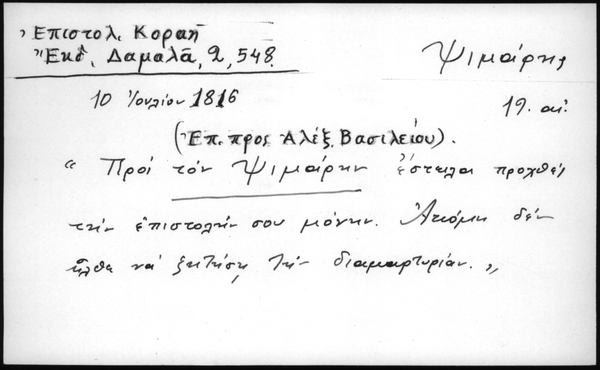 Ἐπιστολ. Κοραῆ
Ἔκδ. Δαμαλᾶ, 2, 548.
Ψιμάρης
10 Ἰουλίου 1816
19. αἰ.
(Ἐπ. προς Αλέξ. Βασιλείου).
" Πρὸς τὸν Ψιμάρην ἔστειλα προχθὲς
τὴν ἐπιστολήν σου μόνην. Ἀκόμη δὲν
ἦλθε νὰ ζητήσῃ τὴν διαμαρτυρίαν. "